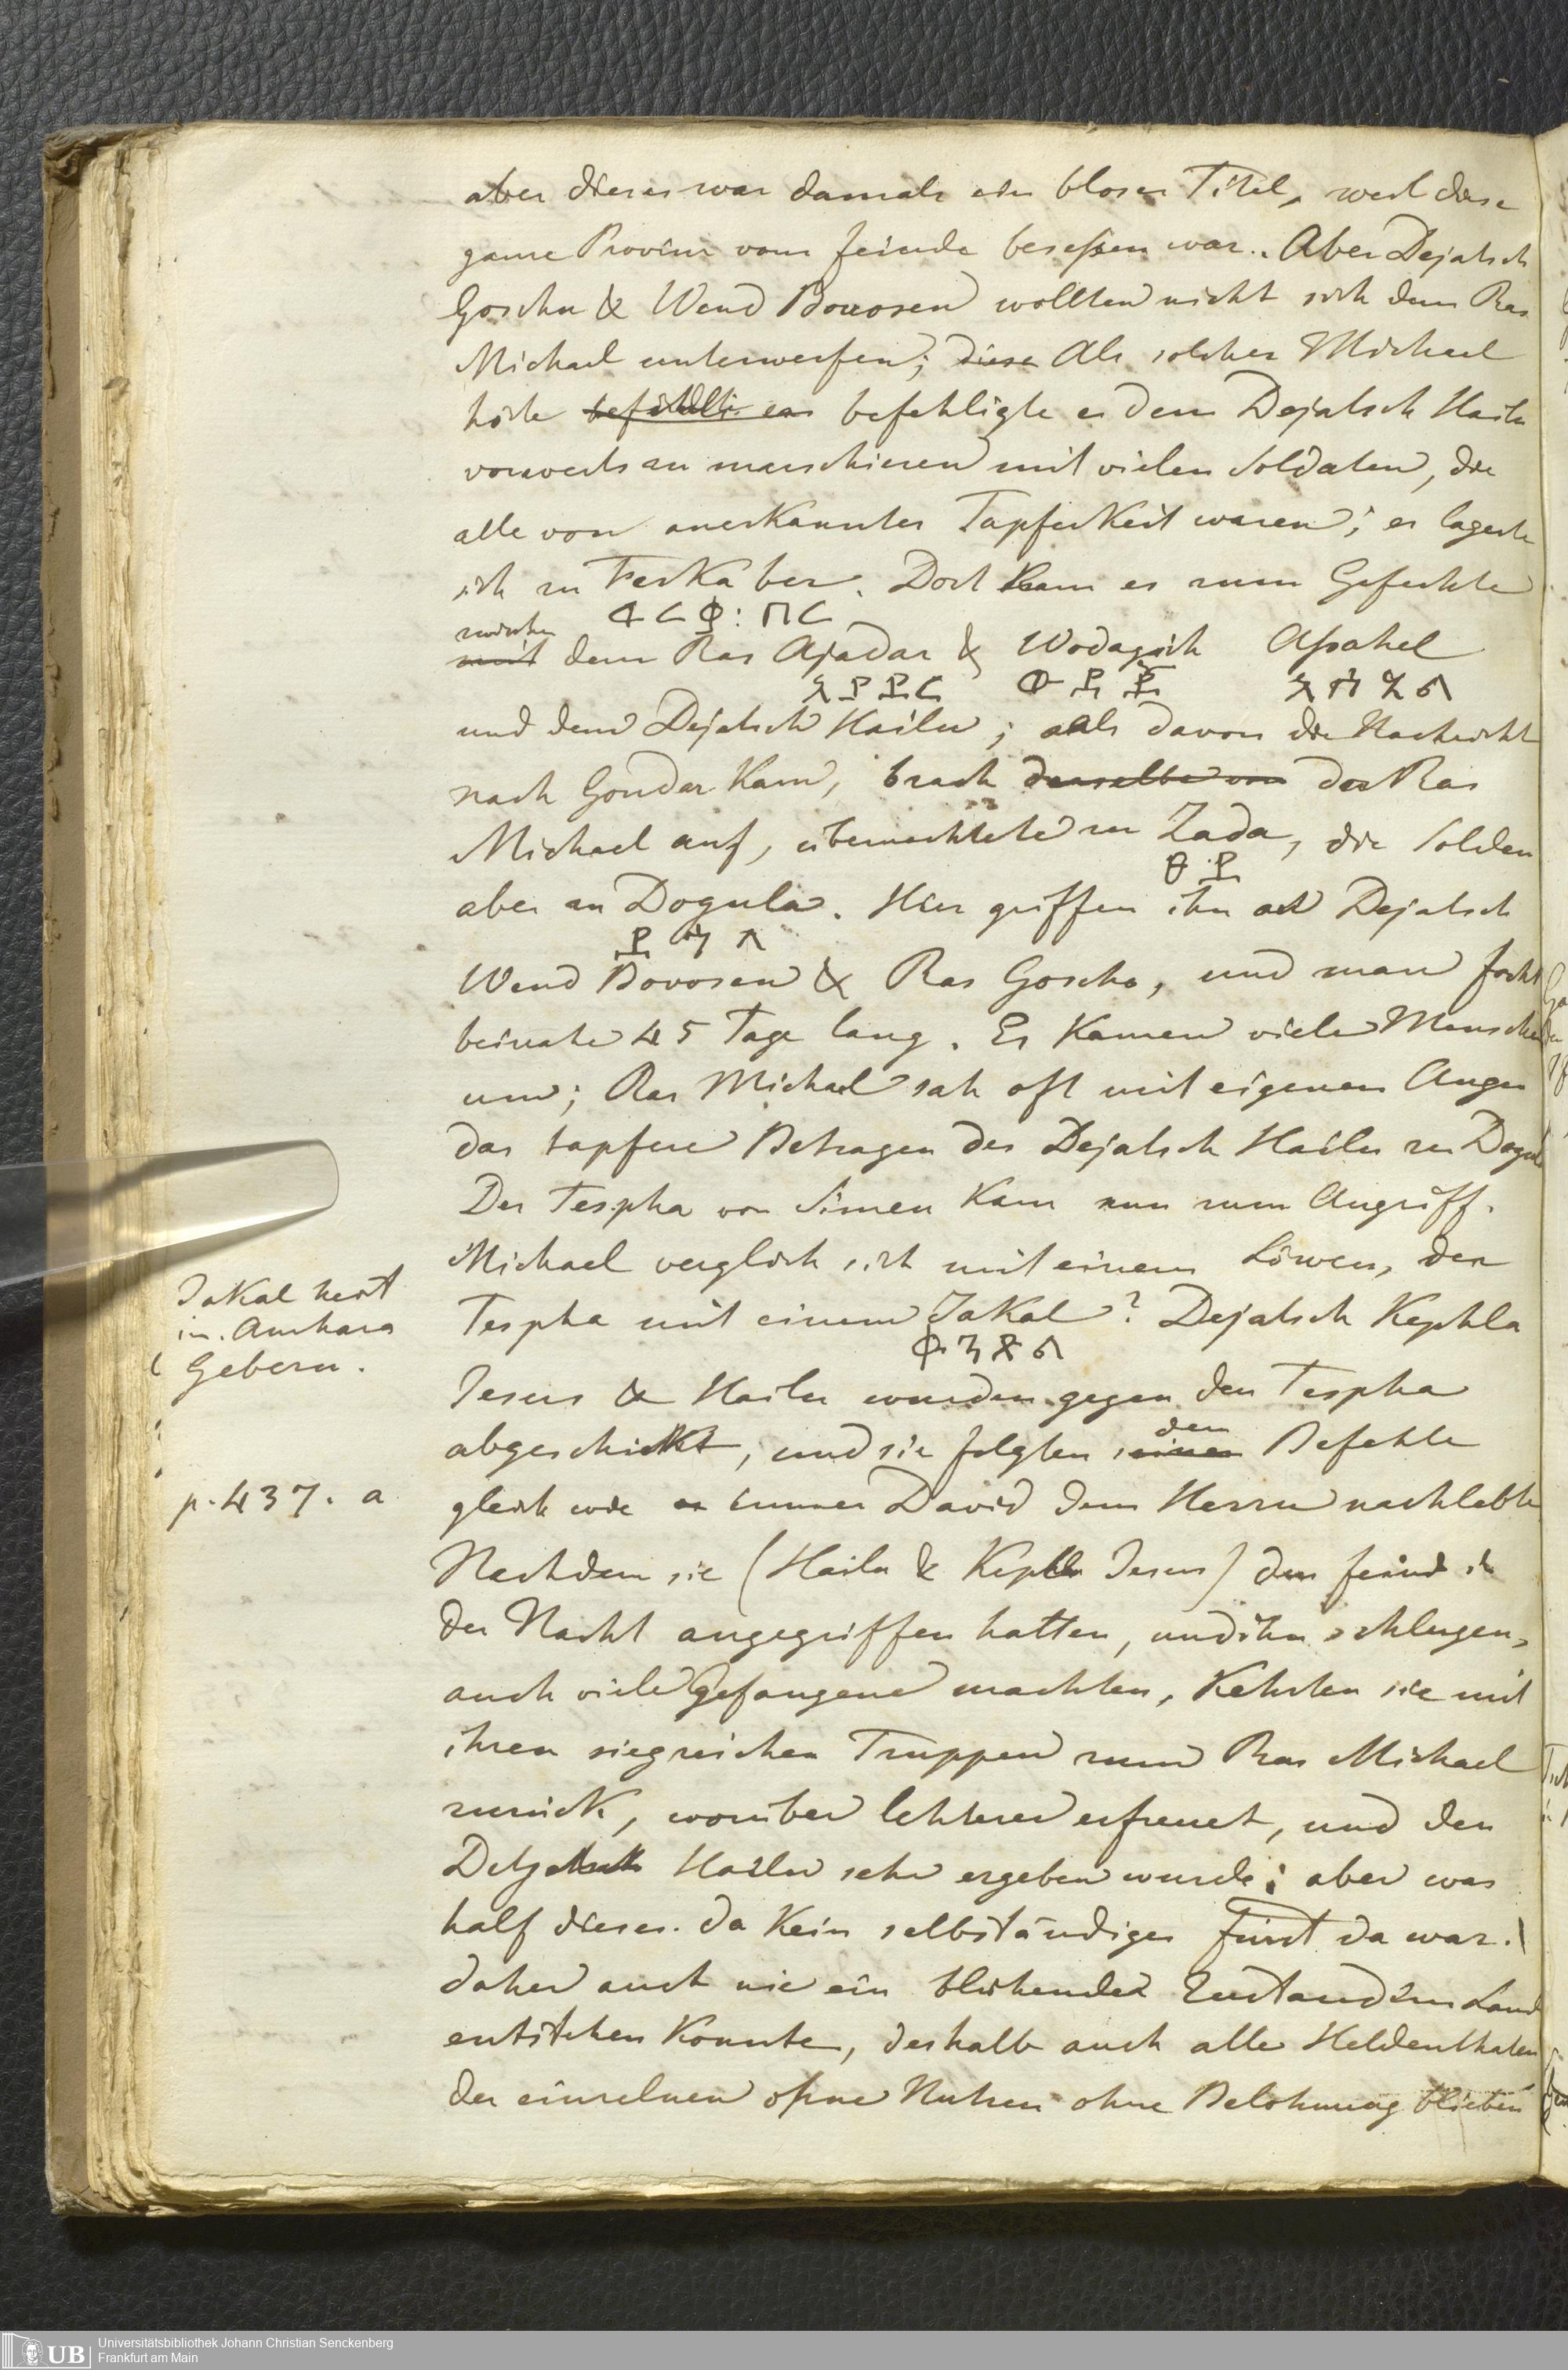 aber dieses war damals ein bloser Titel, weil diese
ganze Provinz vom feinde besessen war. Aber Dejatsch
Goschu & Wend Bovosen wollten nicht sich dem Ras
Michael unterwerfen; diese Als solches Michael
hörte befehligte er dem Dejatsch Hailu
vorwerts zu marschieren mit vielen Soldaten, die
alle von anerkannter Tapferkeit waren; er lagerte
sich zu Ferka ber. Dort kam es zum Gefechte
ፈርቃ: በር
zwischen
mit dem Ras Ajadar & Wodagsich Assahel
አያዳር ወዳጅ አሣሄል
und dem Dejatsch Hailu; als davon die Nachricht
nach Gondar kam, brach derselbe von der Ras
Michael auf, übernachtete zu Zada, die Solden
ፀዳ
aber zu Dogula. Hier griffen ihn an Dejatsch
ደጉላ
Wend Bovosen & Ras Goscho, und man focht
beinahe 45 Tage lang. Es kamen viele Menschen
um; Ras Michael sah oft mit eigenen Augen
das tapfere Betragen des Dejatsch Hailu zu Dogula
Der Tespha von Simen kam nun zum Angriff.
Michael verglich sich mit einem Löwen, den
Tespha mit einem Jakal? Dejatsch Kephla
ቀንጸል
Jakal heist
in Amhara
Gebern.
Jesus & Hailu wurden gegen den Tespha
abgeschickt, und sie folgten seinen dem Befehle
p. 437. a
gleich wie er immer David dem Herrn nachlebte
Nachdem sie (Hailu & Kephla Jesus) den feind in
der Nacht angegriffen hatten, und ihn schlugen,
auch viele Gefangene machten, kehrten sie mit
ihren siegreichen Truppen zum Ras Michael
zurück, worüber letzterer erfreuet, und den
Hailu sehr ergeben wurde; aber was
half dieses. da kein selbständiger Fürst da war.
daher auch nie ein blühender Zustand im Land
entstehen konnte, deshalb auch alle Heldenthaten
der einzelnen ohne Nutzen ohne Belohnung blieben
UB
Universitätsbibliothek Johann Christian Senckenberg
Frankfurt am Main